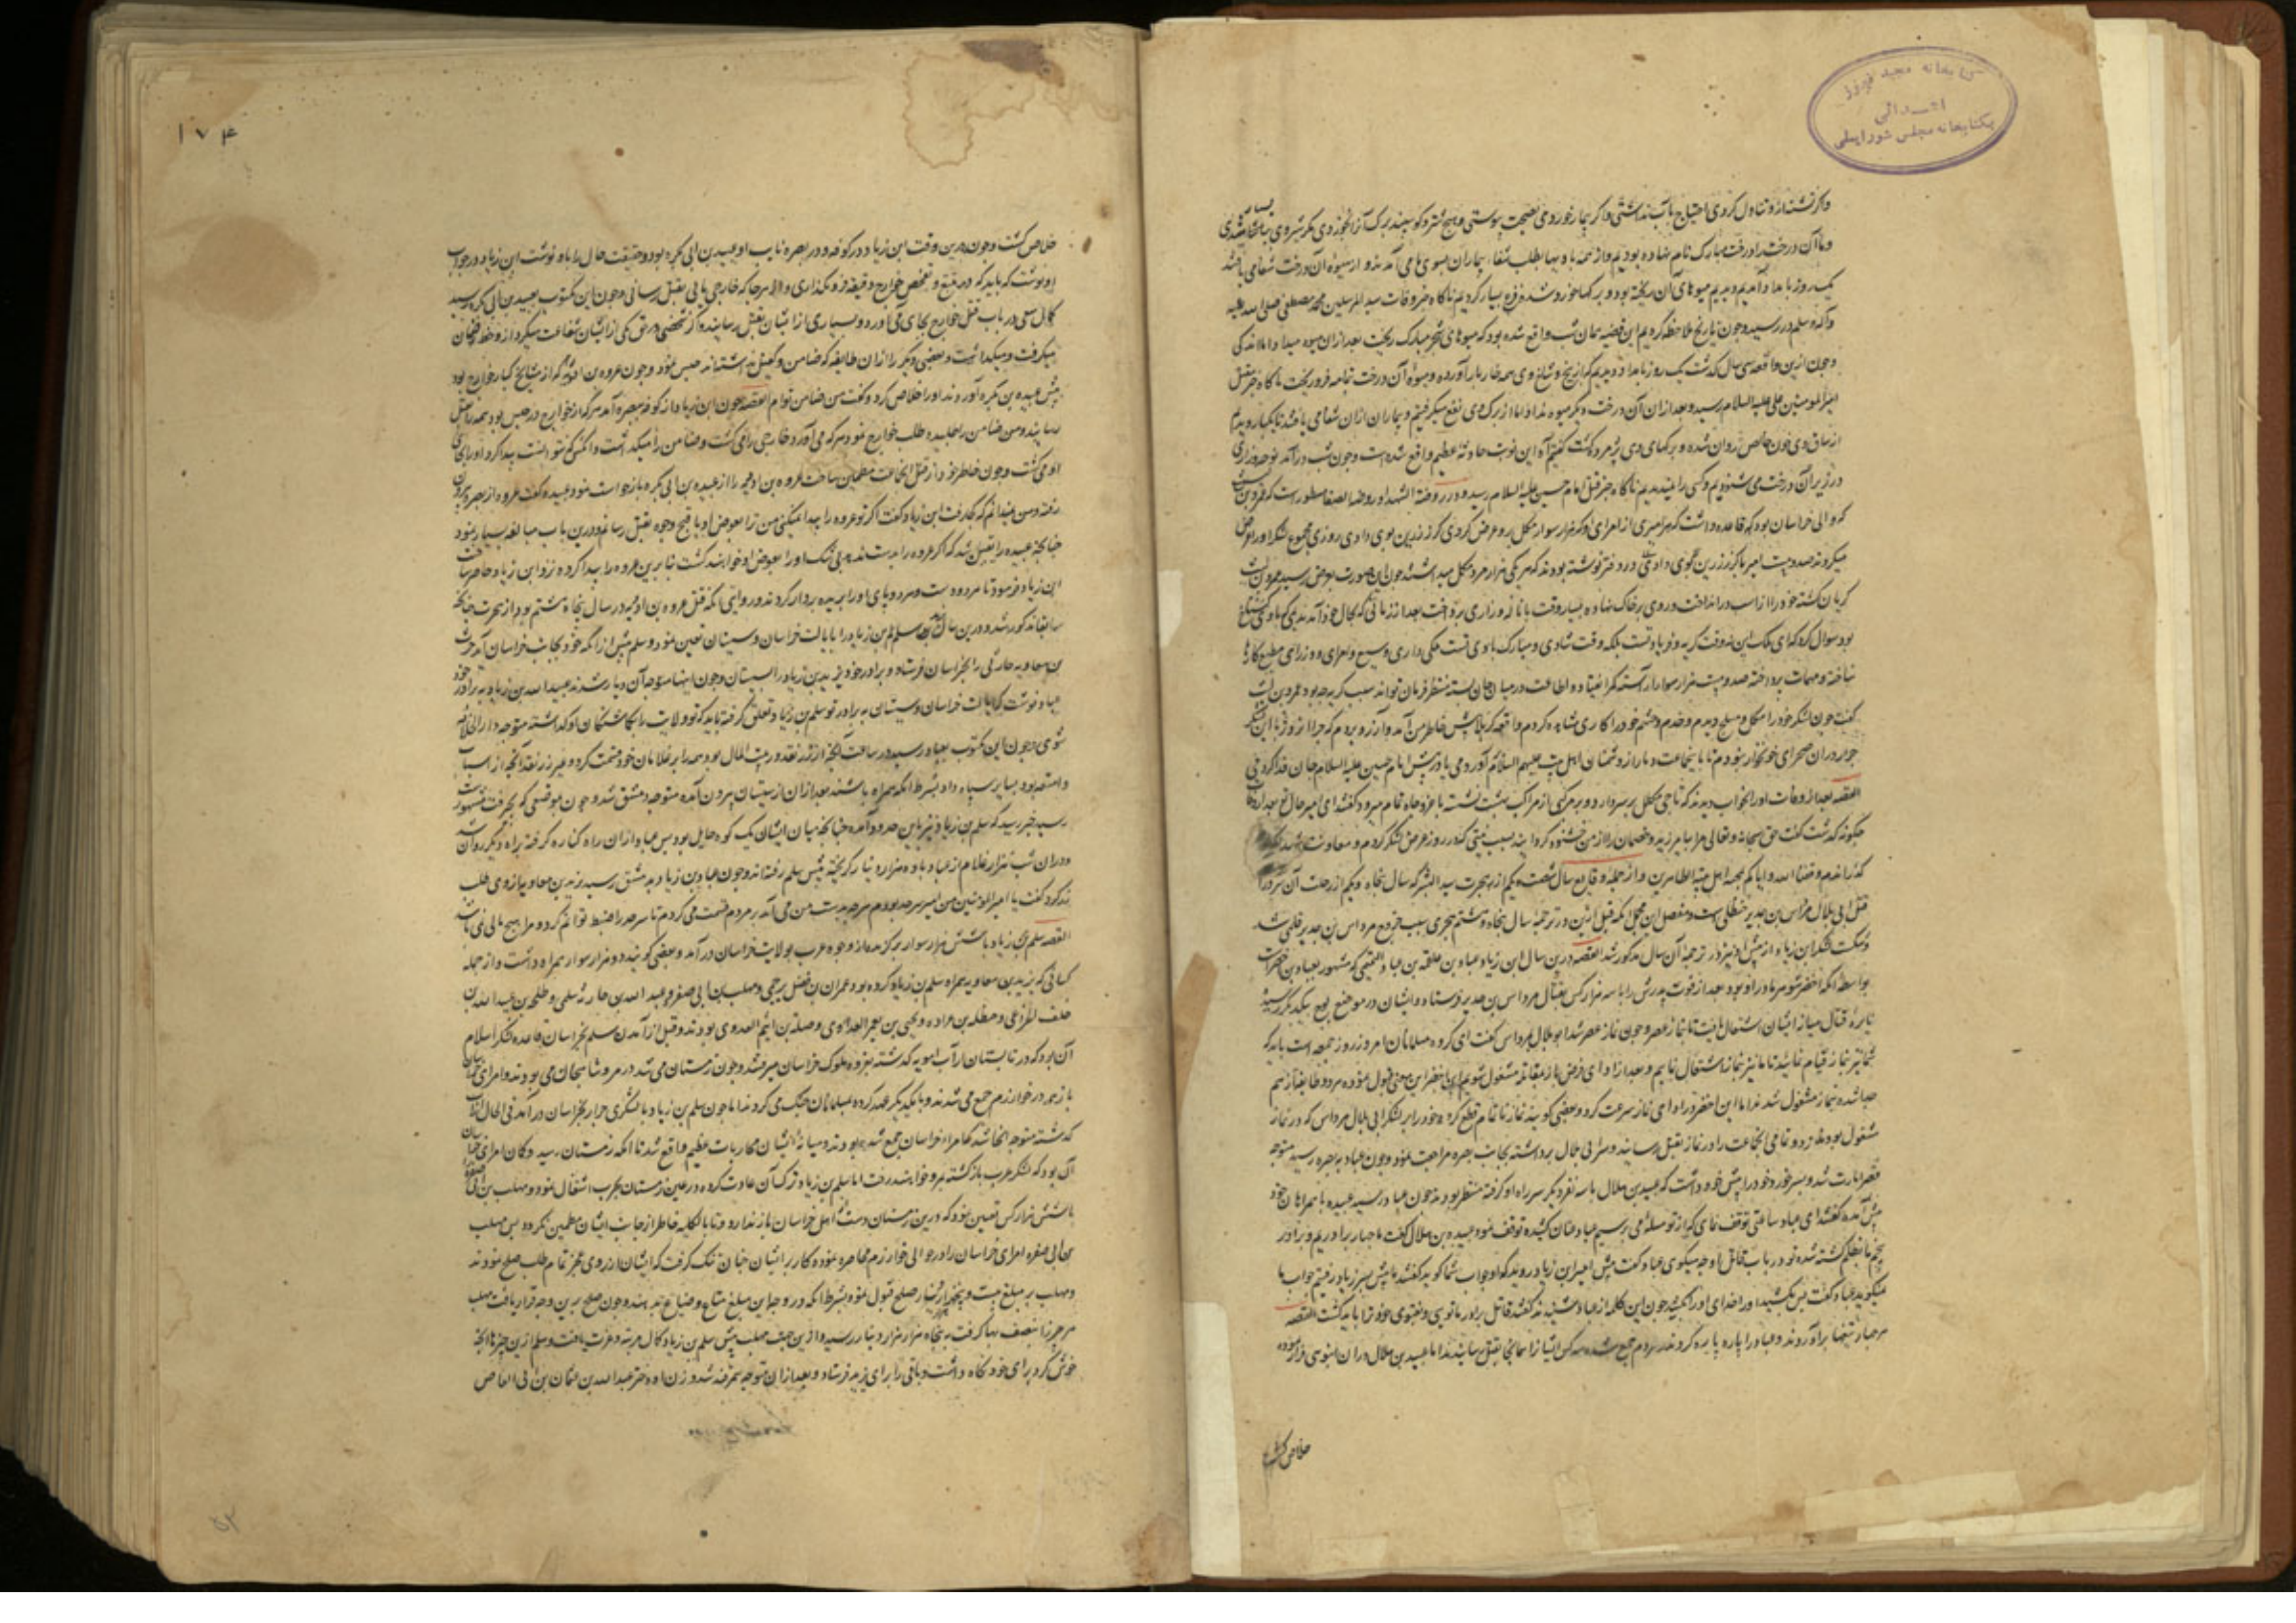 کتابخانه مجید فیروز
اهدائی
بکتابخانه مجلس شورایملی
واکر تشنه ازو تناول کردی احتیاج بآب نداشتی واکر بیمار خوردی بصحت پیوستی و هیچ شتر و کوسپند برک آن نخوردی مکر شیر وی بسیار شدی
وما آن درخت را درخت مبارک نام نهاده بودیم واز همه بادیها بطلب شفاء بیماران بسوی ما می آمدند و از میوه آن درخت شفا می یافتند
یک روز بامداد آمدیم و دیدیم میوهای آن ریخته بود و برکها خورد شده فزع بسیار کردیم ناکاه خبر وفات سید المرسلین محمد مصطفی صلی الله علیه
وآله وسلم در رسید وچون تاریخ ملاحظه کردیم این قضیه همان شب واقع شده بود که میوهای شجر مبارک ریخت بعد ازان میوه میداد اما نه اندکی
وچون ازین واقعه سی سال کذشت یک روز بامداد دیدیم که از بیخ و شاخ وی همه خار بار آورده ومیوه آن درخت تمامه فرو ریخت ناکاه خبر قتل
امیر المومنین علی علیه السلام رسید وبعد ازان آن درخت دیکر میوه نداد اما از برک وی نفع میکرفتیم وبیماران ازان شفا می یافتند تا یکبار دیدیم
از ساق وی خون خالص روان شده وبرکهای وی پژمرده کشت کفتیم آه این نوبت حادثه عظیم واقع شده است وچون شب درآمد نوحه وزاری
در زیر آن درخت می شنودیم وکسی را نمیدیدیم ناکاه خبر قتل امام حسین علیه السلام رسید ودر روضة الشهدا و روضه الصفا مسطور است که عمرو بن لیث
که والی خراسان بود که قاعده داشت که هر امیری از امرای او که هزار سوار مکمل برو عرض کردی کرز زرین بوی دادی روزی مجموع لشکر او را عرض
میکردند صد وبیست امیر با کرز زرین در دفتر نوشته بودند که هر یکی هزار مرد مکمل میداشتند چون این صورت بعرض رسید عمرو بن لیث
کریان کشته خود را از اسب در انداخت و روی بر خاک نهاده بسیار وقت با ناله و زاری پرداخت بعد از زمانی که بحال خود آمد ندیمی که باوی کستاخ
بود سوال کرد که ای ملک این نه وقت کریه و فریادست بلکه وقت شادی و مبارک بادی است ملکی داری وسیع و امرای و وزرای مطیع کارها
ساخته و مهمات پرداخته صد وبیست هزار سوار آراسته کمر انقیاد و اطاعت در میان جان بسته منتظر فرمان تواند سبب کریه چه بود عمرو بن لیث
کفت چون لشکر خود را مکمل و مسلح دیدم و خدم و حشم خود را کاری مشاهده کردم واقعه کربلا پیش خاطر من آمد و آرزو بردم که چرا آن روز با این لشکر
جرار دران صحرای خونخوار نبودم تا با ینجماعت دمار از دشمنان اهل بیت علیهم السلام آوردمی یا در پیش امام حسین علیه السلام جان فدا کردمی
القصه بعد از وفات او را بخواب دیدند که تاجی مکلل بر سر دارد و بر مرکبی از مراکب بهشت نشسته با عز و جاه تمام میرود کفتند ای امیر حال تو بعد از وفات
چکونه کذشت کفت حق سبحانه وتعالی مرا بیامرزید و خصمان را از من خشنود کردانید بسبب نیتی که در روز عرض لشکر کردم
کذراندم وفقنا الله وایاکم بمحبة اهل بیته الطاهرین واز جمله وقایع سال شصت ویکم از هجرت سید البشر که سال پنجاه ویکم از رحلت آن سرور
قتل ابی بلال مرداس بن جدیر حنظلی است ومفصل این مجمل آنکه قبل ازین در ترجمه سال پنجاه وهشتم هجری سبب خروج مرداس بن جدیر قلمی شد
وشکست لشکر ابن زیاد از پیش او نیز در ترجمه آن سال مذکور شد القصه درین سال ابن زیاد عباد بن علقمه بن عباد التمیمی که مشهور بعباد بن اخضر است
بواسطه آنکه اخضر شوهر مادر او بود بعد از فوت پدرش را با سه هزار کس بقتال مرداس بن جدیر فرستاد وایشان در موضع بیکدیکر رسیده
نایره قتال میانه ایشان اشتعال یافت تا نماز عصر وچون نماز عصر شد ابو بلال مرداس کفت ای کروه مسلمانان امروز روز جمعه است باید که
شما نیز بنماز قیام نمایید تا ما نیز بنماز اشتغال نمایم و بعد از ادای فرض باز بمقاتله مشغول شویم ابن اخضر این معنی قبول نموده هر دو طایفه از هم
جدا شده بنماز مشغول شدند اما ابن اخضر در ادای نماز سرعت کرد وبعضی کویند نماز ناتمام قطع کرده خود را بر لشکر ابی بلال مرداس که در نماز
مشغول بودند زد و تمامی انجماعت را در نماز بقتل رسانید وسر ابی بلال برداشته بجانب بصره مراجعت نمود وچون عباد به بصره رسید متوجه
قصر امارت شد و پسر خورد خود را پیش خود داشت که عبیده بن هلال با سه نفر دیکر سر راه او کرفته منتظر بودند چون عباد رسید عبیده با همراهان خود
پیش آمده کفتند ای عباد ساعتی توقف نمای که از تو مسئله می پرسیم عباد عنان کشیده توقف نمود عبیده بن هلال کفت ما چهار برادریم و برادر
پنجم ما بظلم کشته شده تو در باب قاتل او چه میکوی عباد کفت پیش امیر ابن زیاد روید که او جواب شما کوید کفتند ما پیش پسر زیاد رفتیم جواب ما
میکوید عباد کفت پس بکشید او را خدای او را بکشد چون این کلمه از عباد شنیدند کفتند قاتل برادر ما تویی وبفتوی خود ترا باید کشت القصه
هر چهار تیغها برآوردند وعباد را پاره پاره کردند مردم جمع شده سه کس ایشانرا همانجا بقتل رسانیدند اما عبیده بن هلال دران انبوهی فرار نموده
خلاص کشت
۱۷۴
خلاص کشت وچون درین وقت ابن زیاد در کوفه و در بصره نایب او عبیده بن ابی بکره بود وحقیقت حال را باو نوشت ابن زیاد در جواب
او نوشت که باید که در تتبع و تفحص خوارج دقیقه فرو نکذاری والا هر جا که خارجی یابی بقتل رسانی وچون این مکتوب بعبیده بن ابی بکره رسید
کمال سعی در باب قتل خوارج بجای می آورد وبسیاری از ایشان بقتل رسانیده اکر شخصی در حق یکی از ایشان شفاعت میکرد ازو خط ضمان
میکرفت ومیکذاشت وبعضی دیکر را ازان طایفه که ضامن وکفیل نداشتند حبس نمود وچون عروه بن ادیه که از مشایخ کبار خوارج بود
پیش عبیده بن بکره آوردند او را خلاص کرد وکفت من ضامن توام القصه چون ابن زیاد از کوفه ببصره آمد هر که از خوارج در حبس بود همه را بقتل
رسانید ومن ضامن را طلبیده طلب خوارج نمود هر که می آورد خارجی را می کشت وضامن را میکذاشت وانکس که نتوانست پیدا کرد او را بجای
او می کشت وچون خاطر خود از قتل انجماعت مطمئن ساخت عروه بن ادیه را از عبیده بن ابی بکره بازخواست نمود عبیده کفت عروه از بصره بیرون
رفته ومن نمیدانم که کجا رفت ابن زیاد کفت اکر تو عروه را پیدا نمیکنی من ترا بعوض او باقبح وجوه بقتل رسانم ودرین باب مبالغه بسیار نمود
چنانچه عبیده را یقین شد که اکر عروه را بدست ندهد بی شک او را بعوض او خواهند کشت بنابرین عروه را پیدا کرده نزد ابن زیاد حاضر ساخت
ابن زیاد فرمود تا هر دو دست وهر دو پای او را بریده بر دار کردند ودر روایتی آنکه قتل عروه بن ادیه در سال پنجاه وهشتم بود از هجرت چنانچه
سابقا مذکور شد ودرین سال یزید سلم بن زیاد را بایالت خراسان وسیستان تعین نمود وسلم پیش از آنکه خود بجانب خراسان آید حارث
بن معاویه حارثی را بخراسان فرستاد و برادر خود یزید بن زیاد را بسیستان وچون اینها متوجه آن دیار شدند عبید الله بن زیاد به برادر خود
عباد نوشت که ایالت خراسان وسیستان به برادر تو سلم بن زیاد تعلق کرفته باید که تو ولایت را بکماشتکان او کذاشته متوجه دار الخلافه
شوی وچون این مکتوب بعباد رسید در ساعت آنچه از زر نقد در بیت المال بود همه را بر غلامان خود قسمت کرد وغیر زر نقد آنچه از اسباب
وامتعه بود بسایر سپاه داد بشرط آنکه همراه باشند بعد ازان از سیستان بیرون آمده متوجه دمشق شد وچون بموضعی که بجیرفت مشهور است
رسید خبر رسید که سلم بن زیاد نیز باین حدود آمده چنانچه میان ایشان یک کوه حایل بود پس عباد ازان راه کناره کرفته براه دیکر روان شد
ودران شب هزار غلام از عباد با ده هزار دینار کریخته پیش سلم رفتند وچون عباد بن زیاد بدمشق رسید یزید بن معاویه ازوی طلب
زر کرد کفت یا امیر المؤمنین من امیر سرحد بودم هرچه بدست من می آمد بر مردم قسمت می کردم تا سرحد را ضبط توانم کرد ومرا هیچ مالی نمی باشد
القصه سلم بن زیاد با شش هزار سوار برکزیده از وجوه عرب بولایت خراسان درآمد وبعضی کویند دو هزار سوار همراه داشت واز جمله
کسانی که یزید بن معاویه همراه سلم بن زیاد کرده بود عمران بن فضل برجمی ومهلب بن ابی صفره وعبد الله بن خازم سلمی وطلحه بن عبد الله بن
خلف الخزاعی وحنظله بن عراده ویحیی بن یعمر العدوانی وصله بن اشیم العدوی بودند وقبل از آمدن سلم بخراسان قاعده لشکر اسلام
آن بود که در تابستان از آب امویه کذشته بغزوه ملوک خراسان میرفتند وچون زمستان می شد در مرو شاهجان می بودند وامرای خراسان
باز بهم در خوارزم جمع می شدند وبا یکدیکر عهد کرده با مسلمانان جنک می کردند اما چون سلم بن زیاد با لشکری جرار بخراسان درآمد فی الحال از آب
کذشته متوجه آنجا شد که امراء خراسان جمع شده بودند ومیانه ایشان محاربات عظیم واقع شد تا آنکه زمستان رسید وکمان امرای خراسان
آن بود که لشکر عرب بازکشته بمرو خواهند رفت اما سلم بن زیاد ترک آن عادت کرده در عین زمستان بحرب اشتغال نمود ومهلب بن ابی صفره
با شش هزار کس تعین نمود که درین زمستان دست از اهل خراسان باز ندارد وتا بالکلیه خاطر از جانب ایشان مطمئن نکردد پس مهلب
بن ابی صفره امرای خراسان را در حوالی خوارزم محاصره نموده کار بر ایشان چنان تنک کرفت که ایشان از روی عجز تمام طلب صلح نمودند
ومهلب بر مبلغ بیست وپنج هزار هزار دینار صلح قبول نمود بشرط آنکه در وجه این مبلغ متاع وضیاع بدهند وچون صلح برین وجه قرار یافت مهلب
هر چیز را بنصف بها کرفت به پنجاه هزار هزار دینار رسید وازین جهت مهلب پیش سلم بن زیاد کمال مرتبه وعزت یافت وسلم ازین چیزها آنچه
خوش کرد برای خود نکاه داشت وباقی را برای یزید فرستاد وبعد ازان متوجه سمرقند شد و زن او دختر عبد الله بن عثمان بن ابی العاص